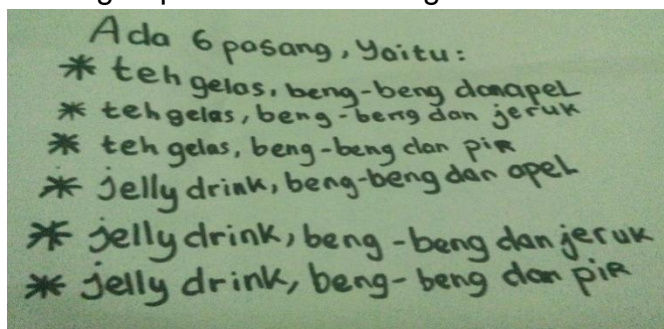 Ada 6 pasang, Yaitu:
* teh gelas, beng-beng dan apel
* teh gelas, beng-beng dan jeruk
* teh gelas, beng-beng dan pir
* jelly drink, beng-beng dan apel
* jelly drink, beng-beng dan jeruk
* jelly drink, beng-beng dan pir